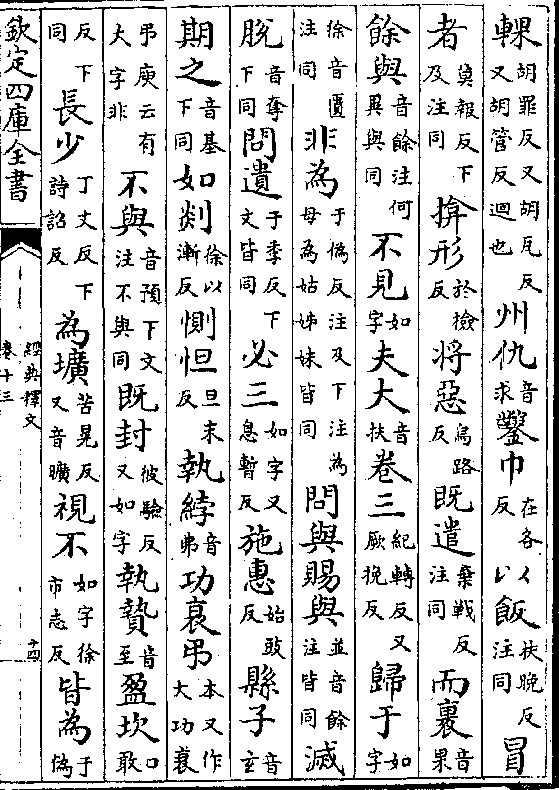 輠胡罪反又胡瓦反又胡管反迴也州仇音求鑿巾在各反以飯扶晚反注同冒
者莫報反下及注同揜形於檢反將惡烏路反既遣棄戰反注同而裹音果
餘與音餘注何異與同不見如字夫大音扶卷三紀轉反又厥挽反歸于如字
徐音匽注同非為于偽反注及下注為母為姑姊妹皆同問與賜與並音餘注皆同滅
脫音奪下同問遺于季反下文皆同必三如字又息暫反施惠始豉反縣子音玄
期之音基下同如剡徐以漸反惻怛旦末反執綍音弗功衰弔本又作大功衰
弔庾云有大字非不與音預下文注不與同既封彼驗反又如字執贄音至盈坎口敢
反下同長少丁丈反下詩詔反為壙苦晃反又音曠視不如字徐市志反皆為于偽
欽定四庫全書
經典釋文
卷十三
十四